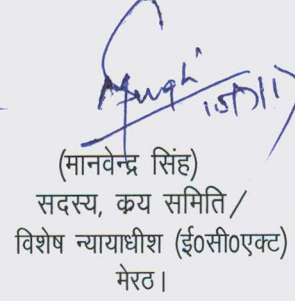 (मानवेन्द्र सिंह)
सदस्य, क्रय समिति /
विशेष न्यायाधीश (ई0सी0एक्ट)
मेरठ।